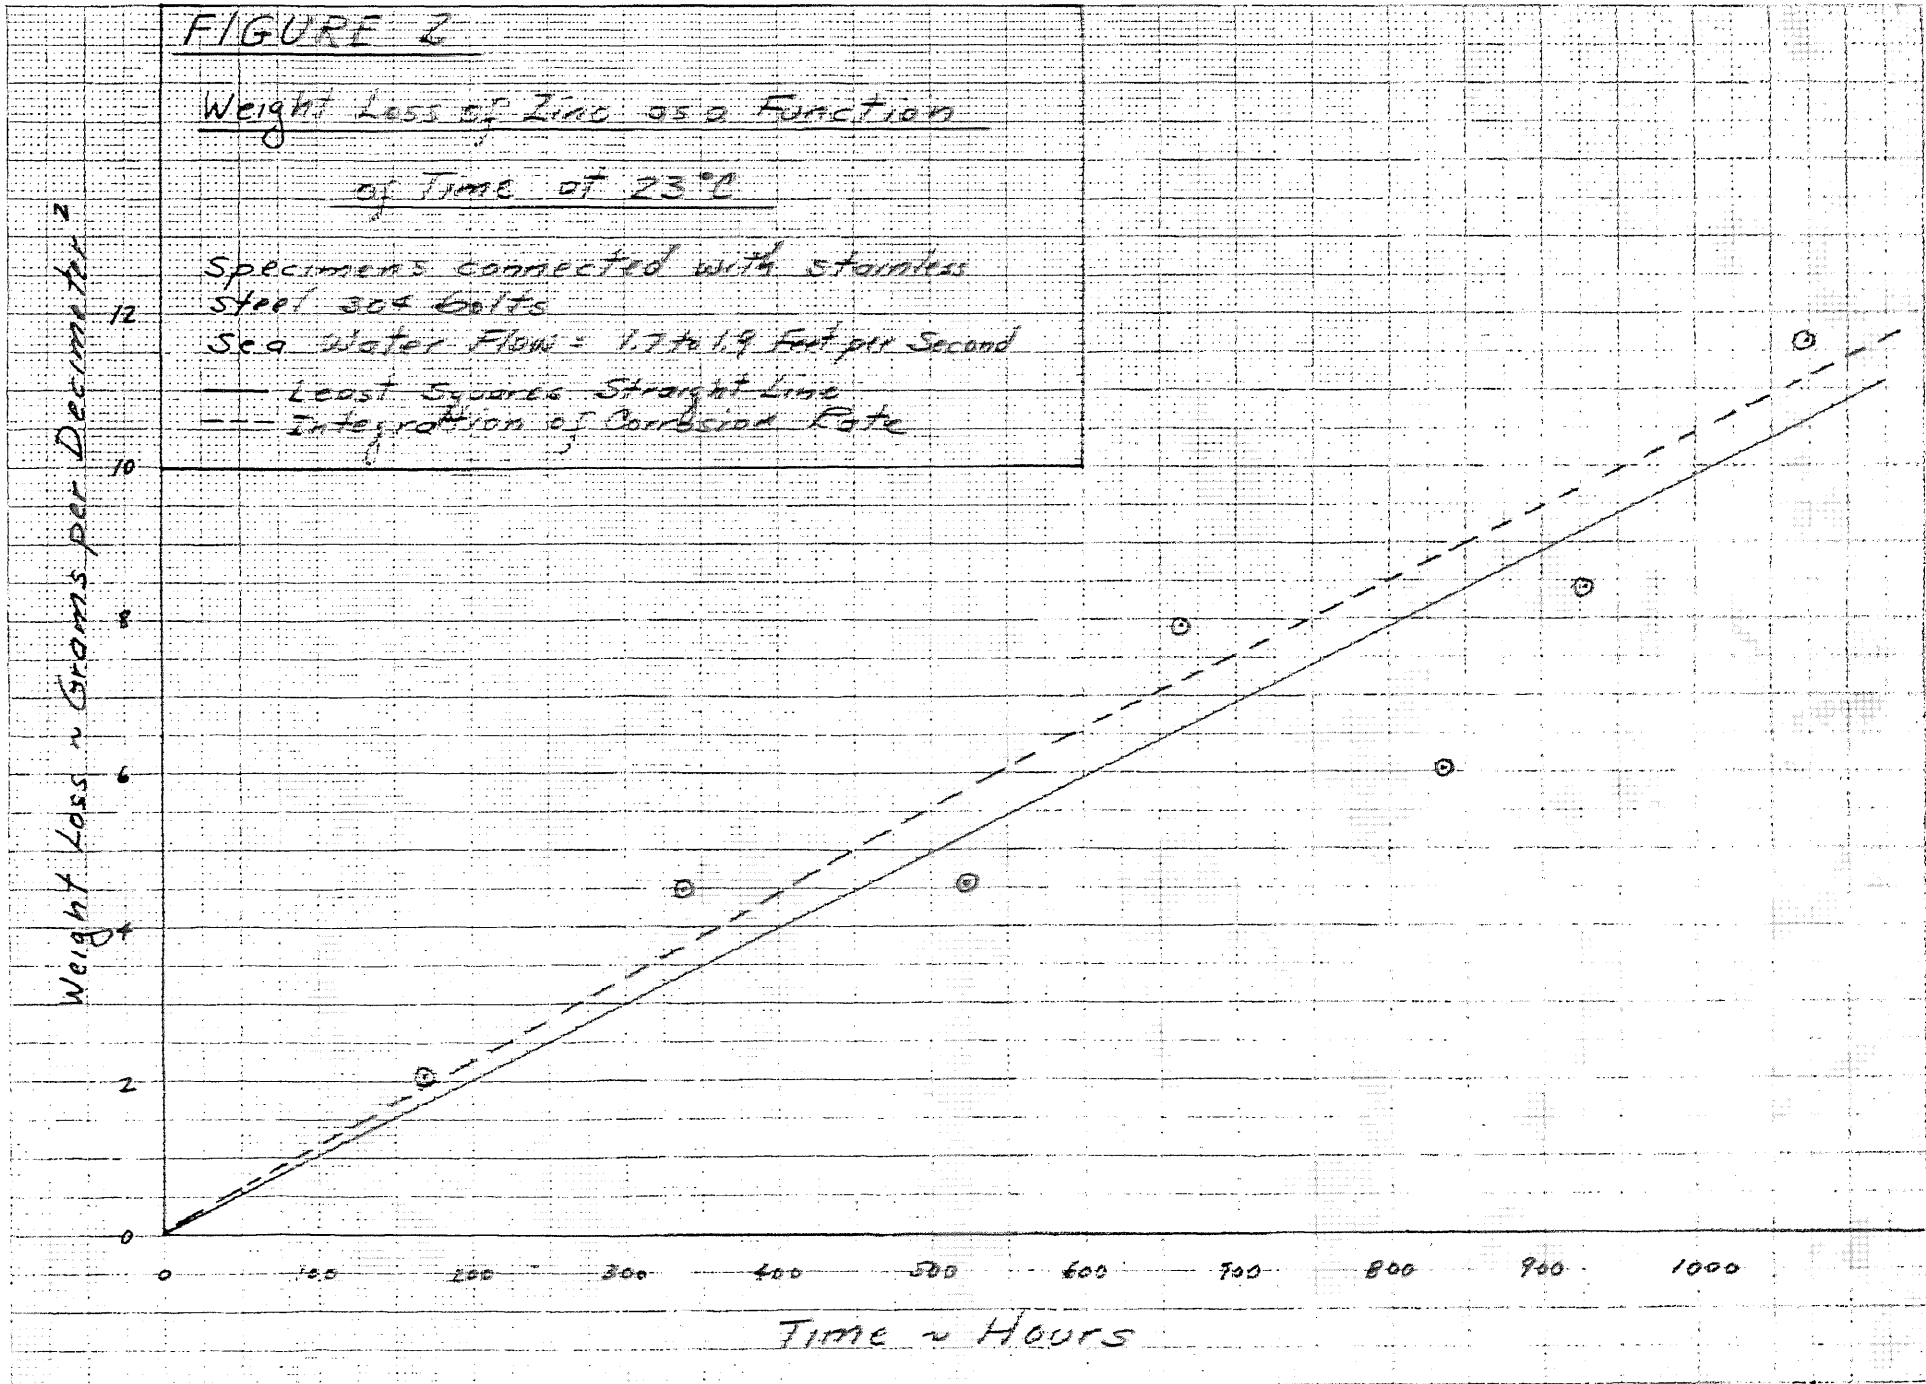 FIGURE 2
Weight Loss of Zinc as a Function
of Time at 23°C
Specimens connected with stainless
steel 304 bolts
Sea Water Flow = 1.7 to 1.9 Feet per Second
Least Squares Straight Line
Integration of Corrosion Rate
Weight Loss ~ Grams per Decimeter²
12
10
8
6
4
2
0
0 100 200 300 400 500 600 700 800 900 1000
Time ~ Hours